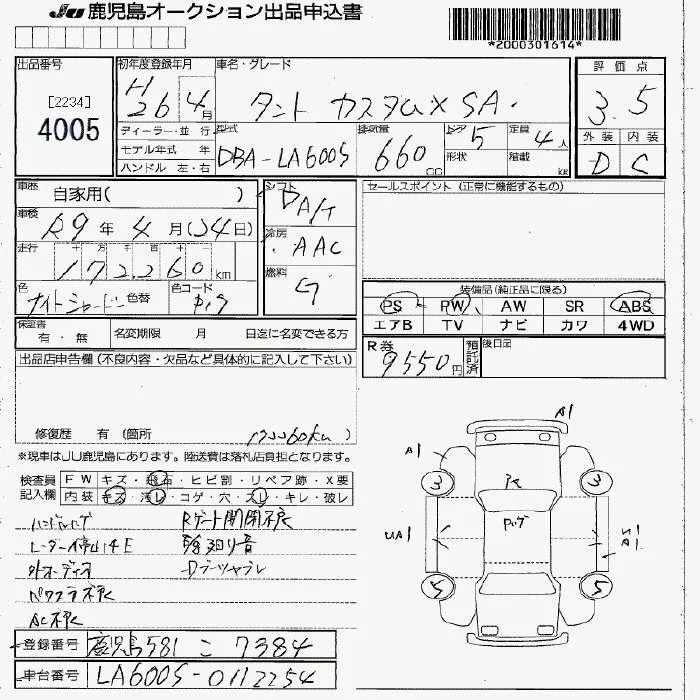 JU 鹿児島オークション出品申込書
*2000301614*
出品番号
[2234]
4005
初年度登録年月
H26 4月
車名・グレード
タント カスタムX SA
ディーラー・並 行
モデル年式 年
ハンドル 左・右
型式
DBA-LA600S
排気量
660 CC
ドア 5
形状
定員 4人
積載 KG
評価点
3.5
外装 内装
D C
車歴
自家用( )
車検
R9年 4月(24日)
走行 十 万 千 百 十
172260 km
色
色替
色コード
シフト
DA/T
冷房
AAC
燃料
G
セールスポイント (正常に機能するもの)
装備品(純正品に限る)
PS PW AW SR ABS
エアB TV ナビ カワ 4WD
保証書
有・無
名変期限 月 日迄に名変できる方
R券
9550円
預託済
後日品
出品店申告欄(不良内容・欠品など具体的に記入して下さい)
修復歴 有 (箇所 172260km )
※現車はJU鹿児島にあります。陸送費は落札店負担となります。
検査員記入欄
FW キズ・飛石・ヒビ割・リペア跡・X要
内装 キズ・汚レ・コゲ・穴・スレ・キレ・破レ
Rゲート開閉不良
外オーディオ
Dブーツヤブレ
AC不良
登録番号 鹿児島581 こ 7384
車台番号 LA600S-0112254
A1
A1
3
3
UA1
A1
5
5